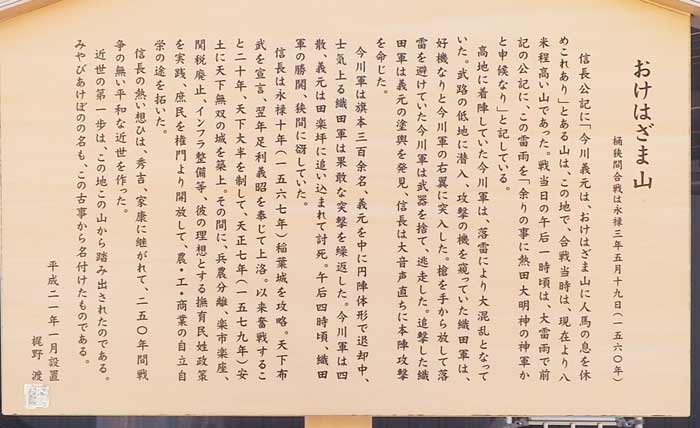 おけはざま山
桶狭間合戦は永禄三年五月十九日(一五六〇年)
信長公記に「今川義元は、おけはざま山に人馬の息を休
めこれあり」とある山は、この地で、合戦当時は、現在より八
米程高い山であった。戦当日の午后一時頃は、大雷雨で前
記の公記に、この雷雨を「余りの事に熱田大明神の神軍か
と申候なり」と記している。
高地に着陣していた今川軍は、落雷により大混乱となって
いた。武路の低地に潜入、攻撃の機を窺っていた織田軍は、
好機なりと今川軍の右翼に突入した。槍を手から放して落
雷を避けていた今川軍は武器を捨て、逃走した。追撃した織
田軍は義元の塗輿を発見、信長は大音声直ちに本陣攻撃
を命じた。
今川軍は旗本三百余名、義元を中に円陣体形で退却中、
士気上る織田軍は果敢な突撃を繰返した。今川軍は四
散、義元は田楽坪に追い込まれて討死。午后四時頃、織田
軍の勝鬨、狭間に谺していた。
信長は永禄十年(一五六七年)稲葉城を攻略。天下布
武を宣言、翌年足利義昭を奉じて上洛。以来奮戦するこ
と二十年、天下大半を制して、天正七年(一五七九年)安
土に天下無双の城を築上。その間に、兵農分離、楽市楽座、
関税廃止、インフラ整備等、彼の理想とする撫育民姓政策
を実践、庶民を権門より開放して、農・工・商業の自立自
栄の途を拓いた。
信長の熱い想ひは、秀吉、家康に継がれて、二五〇年間戦
争の無い平和な近世を作った。
近世の第一歩は、この地この山から踏み出されたのである。
みやびあけぼのの名も、この古事から名付けたものである。
平成二一年一月設置
梶野 渡